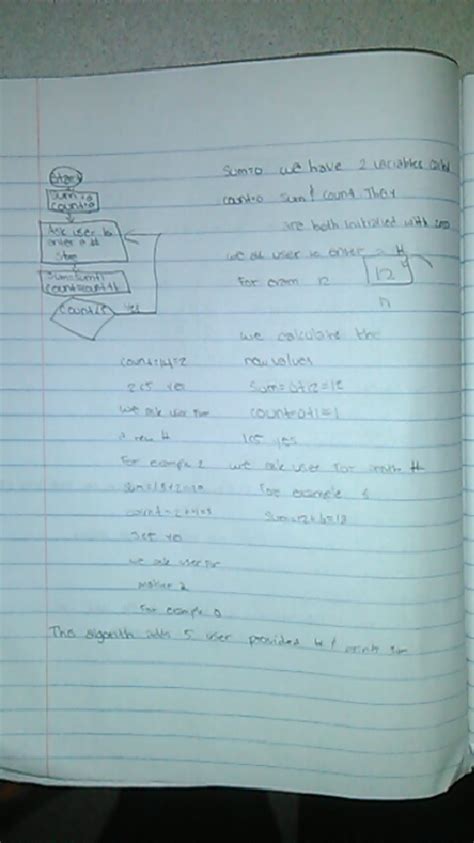 Start
Sum=0
count=0
Ask user to
enter a #
Sum=Sum+n
count=count+1
Count<5 yes
Sum=0 we have 2 variables called
count=0 Sum & count. They
are both initialized with zero
we ask user to enter a #
For exam 12
12
n
we calculate the
new values
Sum=0+12=12
count=0+1=1
1<5 yes
we ask user for #
For example 6
Sum=12+6=18
count=1+1=2
2<5 yes
we ask user for
a new #
For example 2
count=2+1=3
3<5 yes
we ask user for
For example 0
The algorith adds 5 user provided # & prints sum